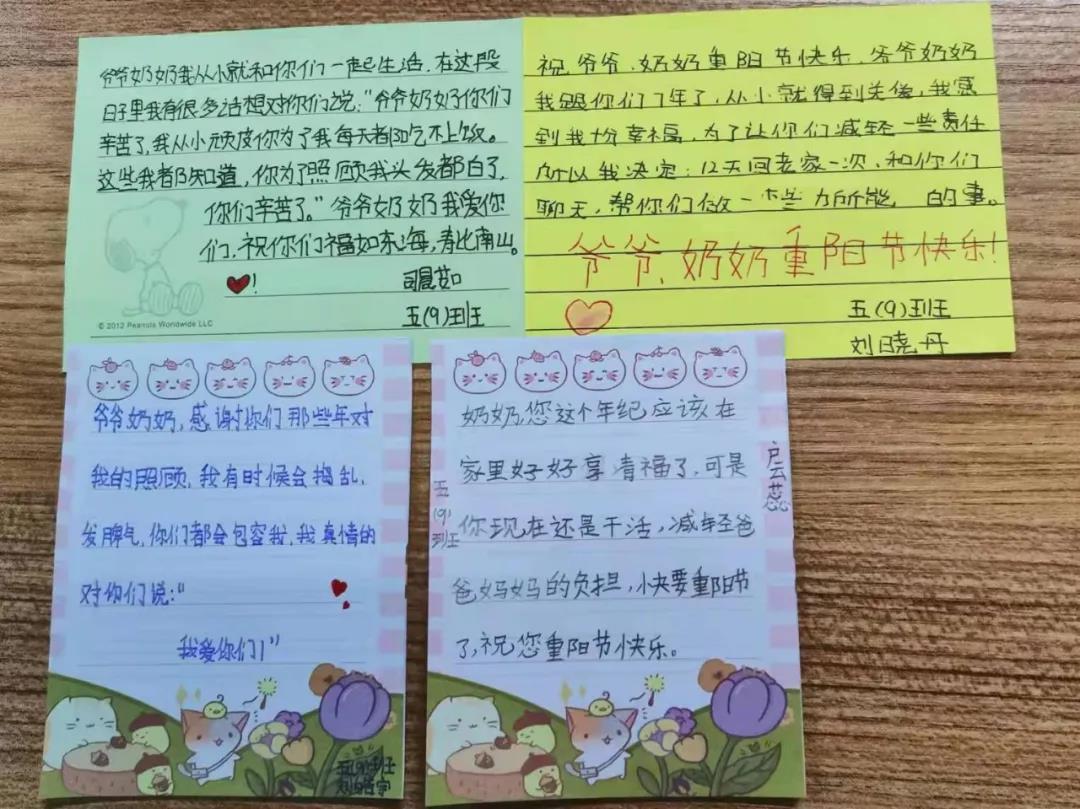 爷爷奶奶我从小就和你们一起生活,在这段
日子里我有很多话想对你们说:"爷爷奶奶你们
辛苦了,我从小顽皮你为了我每天都吃不上饭。
这些我都知道,你为了照顾我头发都白了,
你们辛苦了。"爷爷奶奶我爱你
们,祝你们福如东海,寿比南山。
!
司晨茹
五(9)班
© 2012 Peanuts Worldwide LLC
祝爷爷、奶奶重阳节快乐,爷爷奶奶
我跟你们7年了,从小就得到关爱,我感
到我十分幸福,为了让你们减轻一些责任
所以我决定:12天回老家一次,和你们
聊天,帮你们做一些力所能 的事。
爷爷、奶奶重阳节快乐!
五(9)班
刘晓丹
爷爷奶奶,感谢你们那些年对
我的照顾,我有时候会捣乱,
发脾气,你们都会包容我,我真情的
对你们说:"
我爱你们!"
五(9)班
奶奶,您这个年纪应该在
家里好好享清福了,可是
你现在还是干活,减轻爸
爸妈妈的负担,快要重阳节
了,祝您重阳节快乐。
五(9)班
卢云蕊